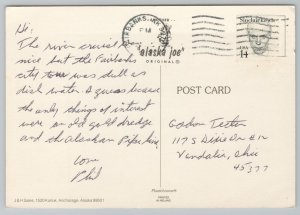 FAIRBANKS,
PM
"alaska joe"
ORIGINAL
Sinclair Lewis
USA
14
Hi:
The river cruise was
nice but the Fairbanks
city tour was dull as
dish water. I guess because
the only things of interest
were an old gold dredge
and the alaskan Pipe line
love
Phil
POST CARD
1175 Dixie
Vandalia, Ohio
45377
J & H Sales, 1520 Karluk, Anchorage, Alaska 99501
PRINTED
IN IRELAND